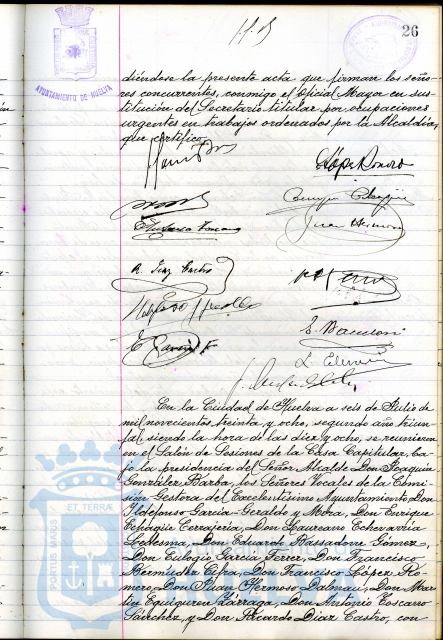 26
AYUNTAMIENTO DE HUELVA
diéndose la presente acta que firman los seño-
res concurrentes, conmigo el Oficial Mayor en sus-
titución del Secretario titular por ocupaciones
urgentes en trabajos ordenados por la Alcaldía,
que certifico.
López Romero
R. Díaz Castro
En la Ciudad de Huelva a seis de Julio de
mil novecientos treinta y ocho, segundo año triun-
fal, siendo la hora de las diez y ocho, se reunieron
en el Salón de Sesiones de la Casa Capitular, ba-
jo la presidencia del Señor Alcalde Don Joaquín
González Barba, los Señores Vocales de la Comi-
sión Gestora del Excelentísimo Ayuntamiento, Don
Ildefonso García-Geraldo y Mora, Don Enrique
Echagüe Don Laureano Echevarría
Ledesma, Don Eduardo Bassadone Gómez,
Don Eulogio García Ferrer, Don Francisco
Bermúdez Cifra, Don Francisco López Ro-
mero, Don Juan Hermoso Dalmau, Don Mar-
tín Equiguren Zárraga, Don Antonio Toscano
Sánchez, y Don Ricardo Díaz Castro, con
PORTUS MARIS ET TERRAE